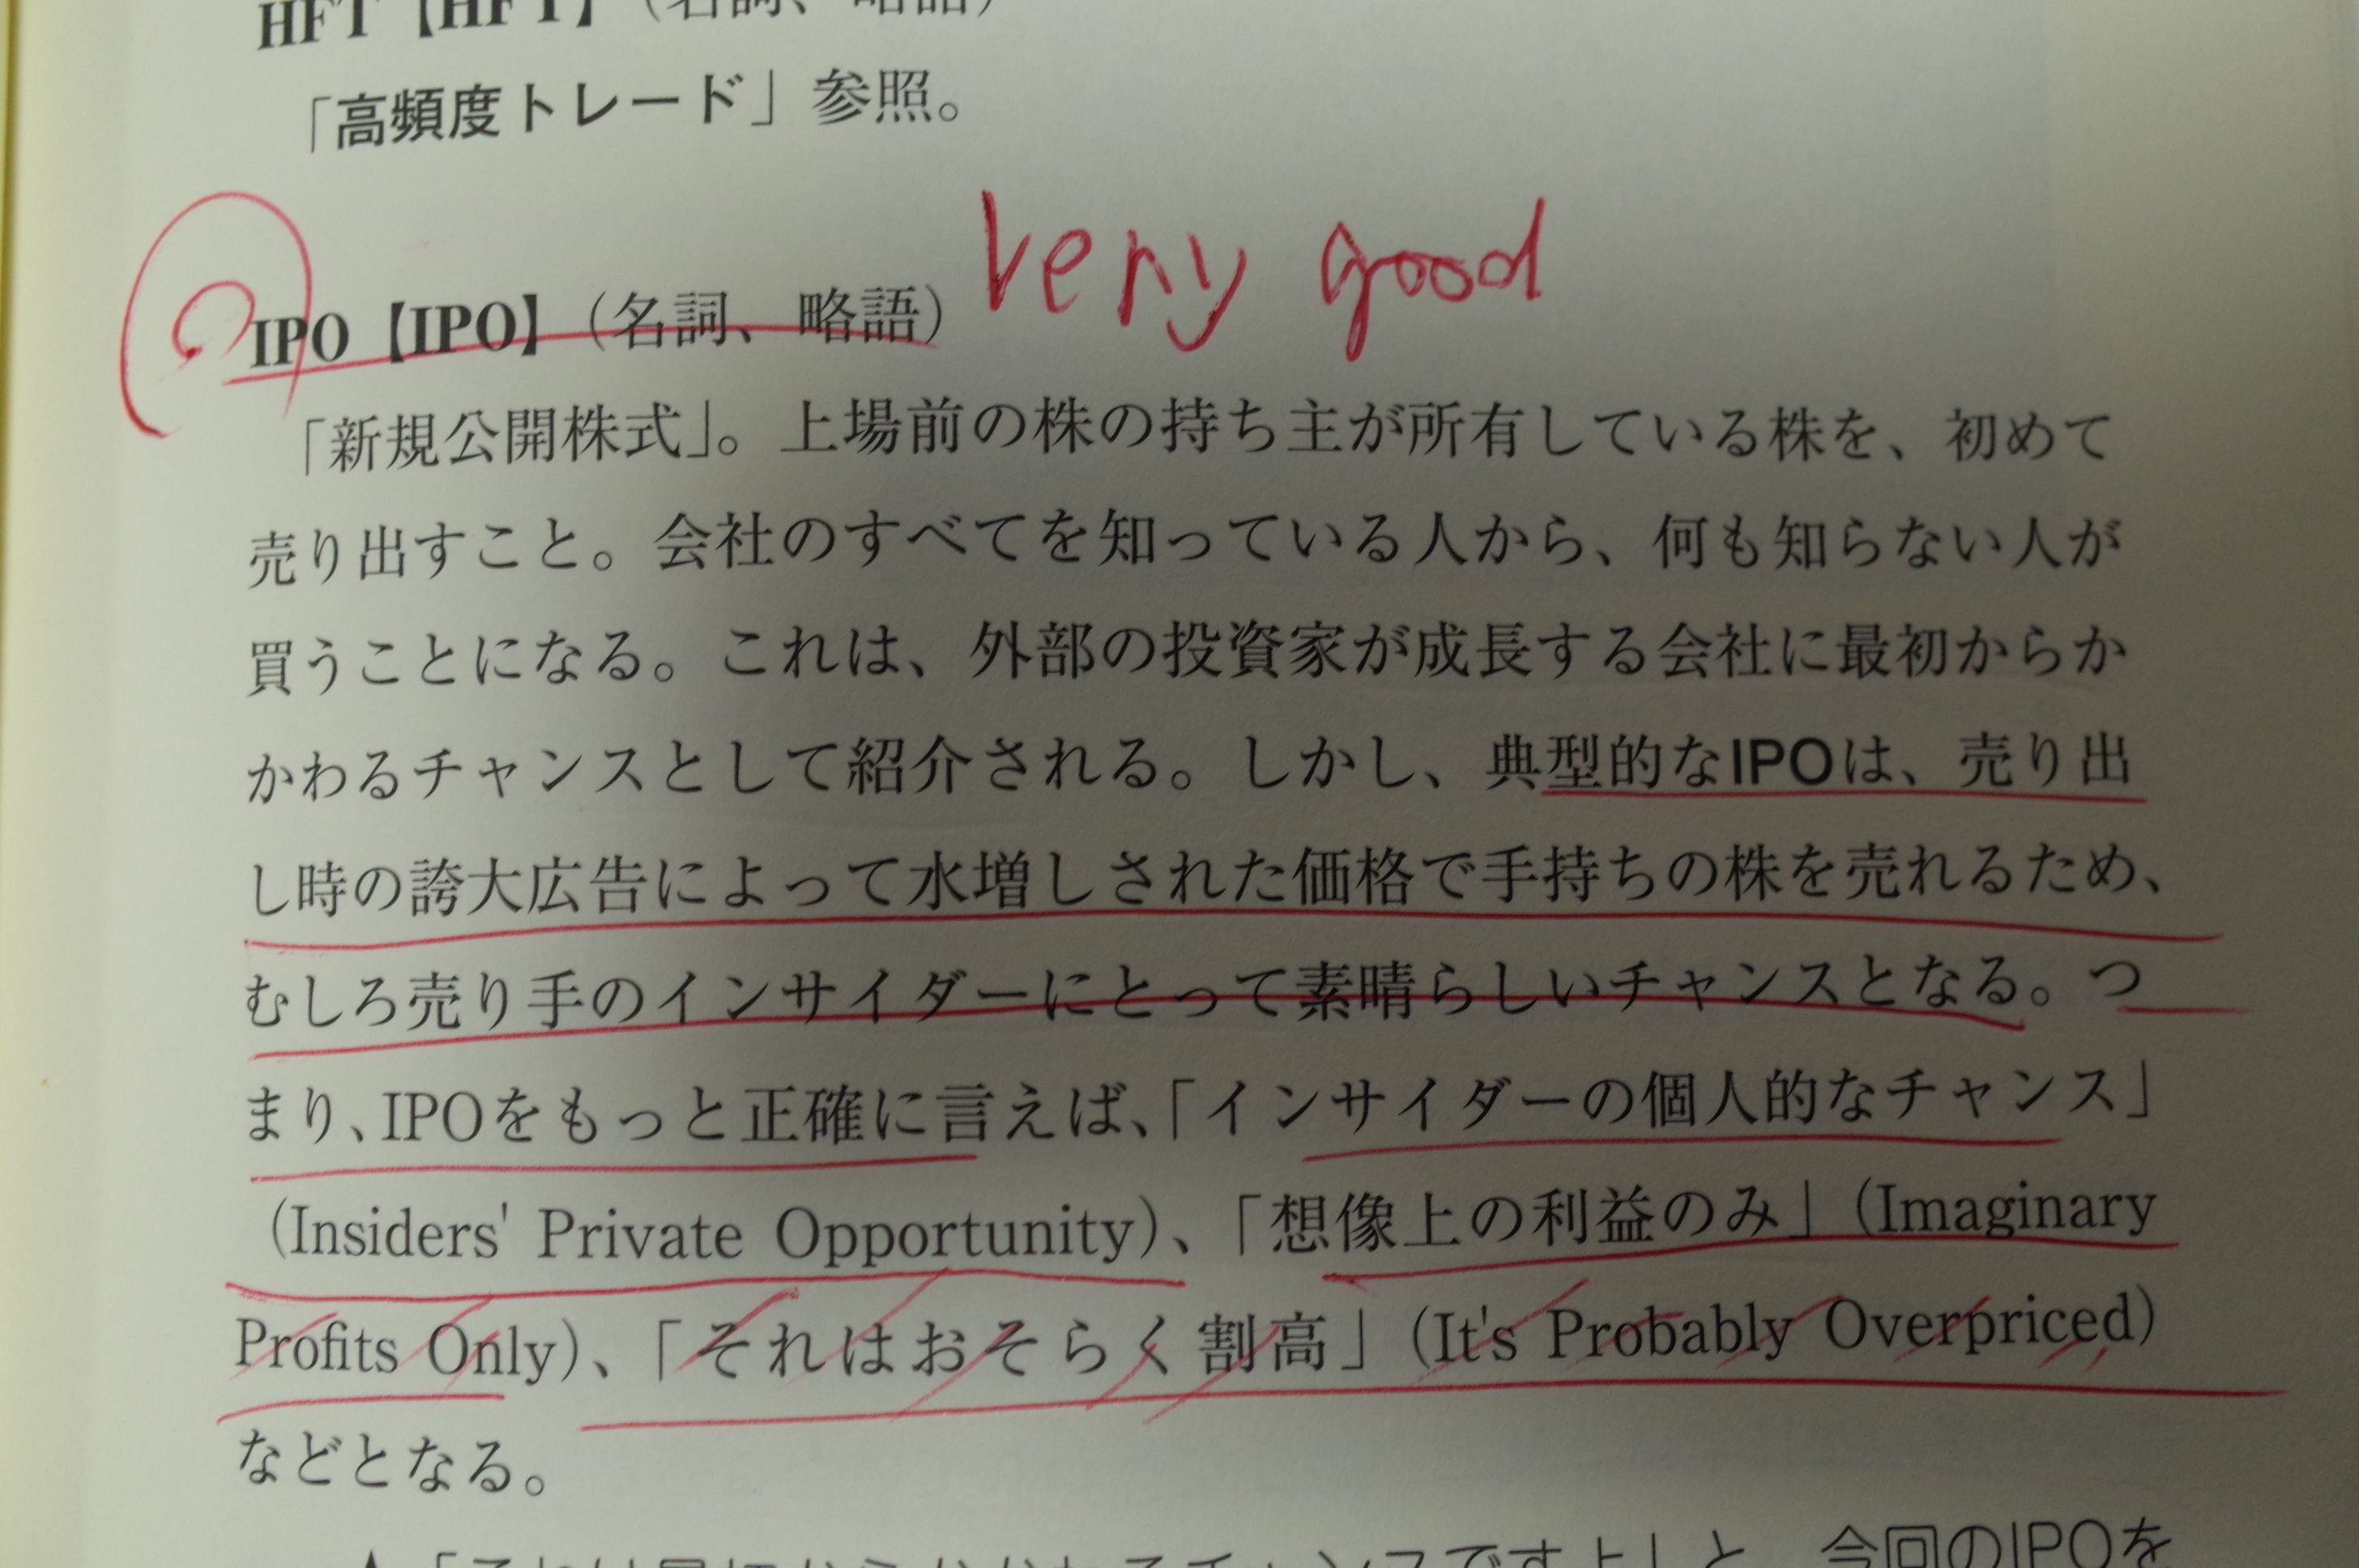 HFT【HFT】(名詞、略語)
「高頻度トレード」参照。
very good
IPO【IPO】(名詞、略語)
「新規公開株式」。上場前の株の持ち主が所有している株を、初めて
売り出すこと。会社のすべてを知っている人から、何も知らない人が
買うことになる。これは、外部の投資家が成長する会社に最初からか
かわるチャンスとして紹介される。しかし、典型的なIPOは、売り出
し時の誇大広告によって水増しされた価格で手持ちの株を売れるため、
むしろ売り手のインサイダーにとって素晴らしいチャンスとなる。つ
まり、IPOをもっと正確に言えば、「インサイダーの個人的なチャンス」
(Insiders' Private Opportunity)、「想像上の利益のみ」(Imaginary
Profits Only)、「それはおそらく割高」(It's Probably Overpriced)
などとなる。
「それは最初からかかわるチャンスですよ」と、今回のIPOを